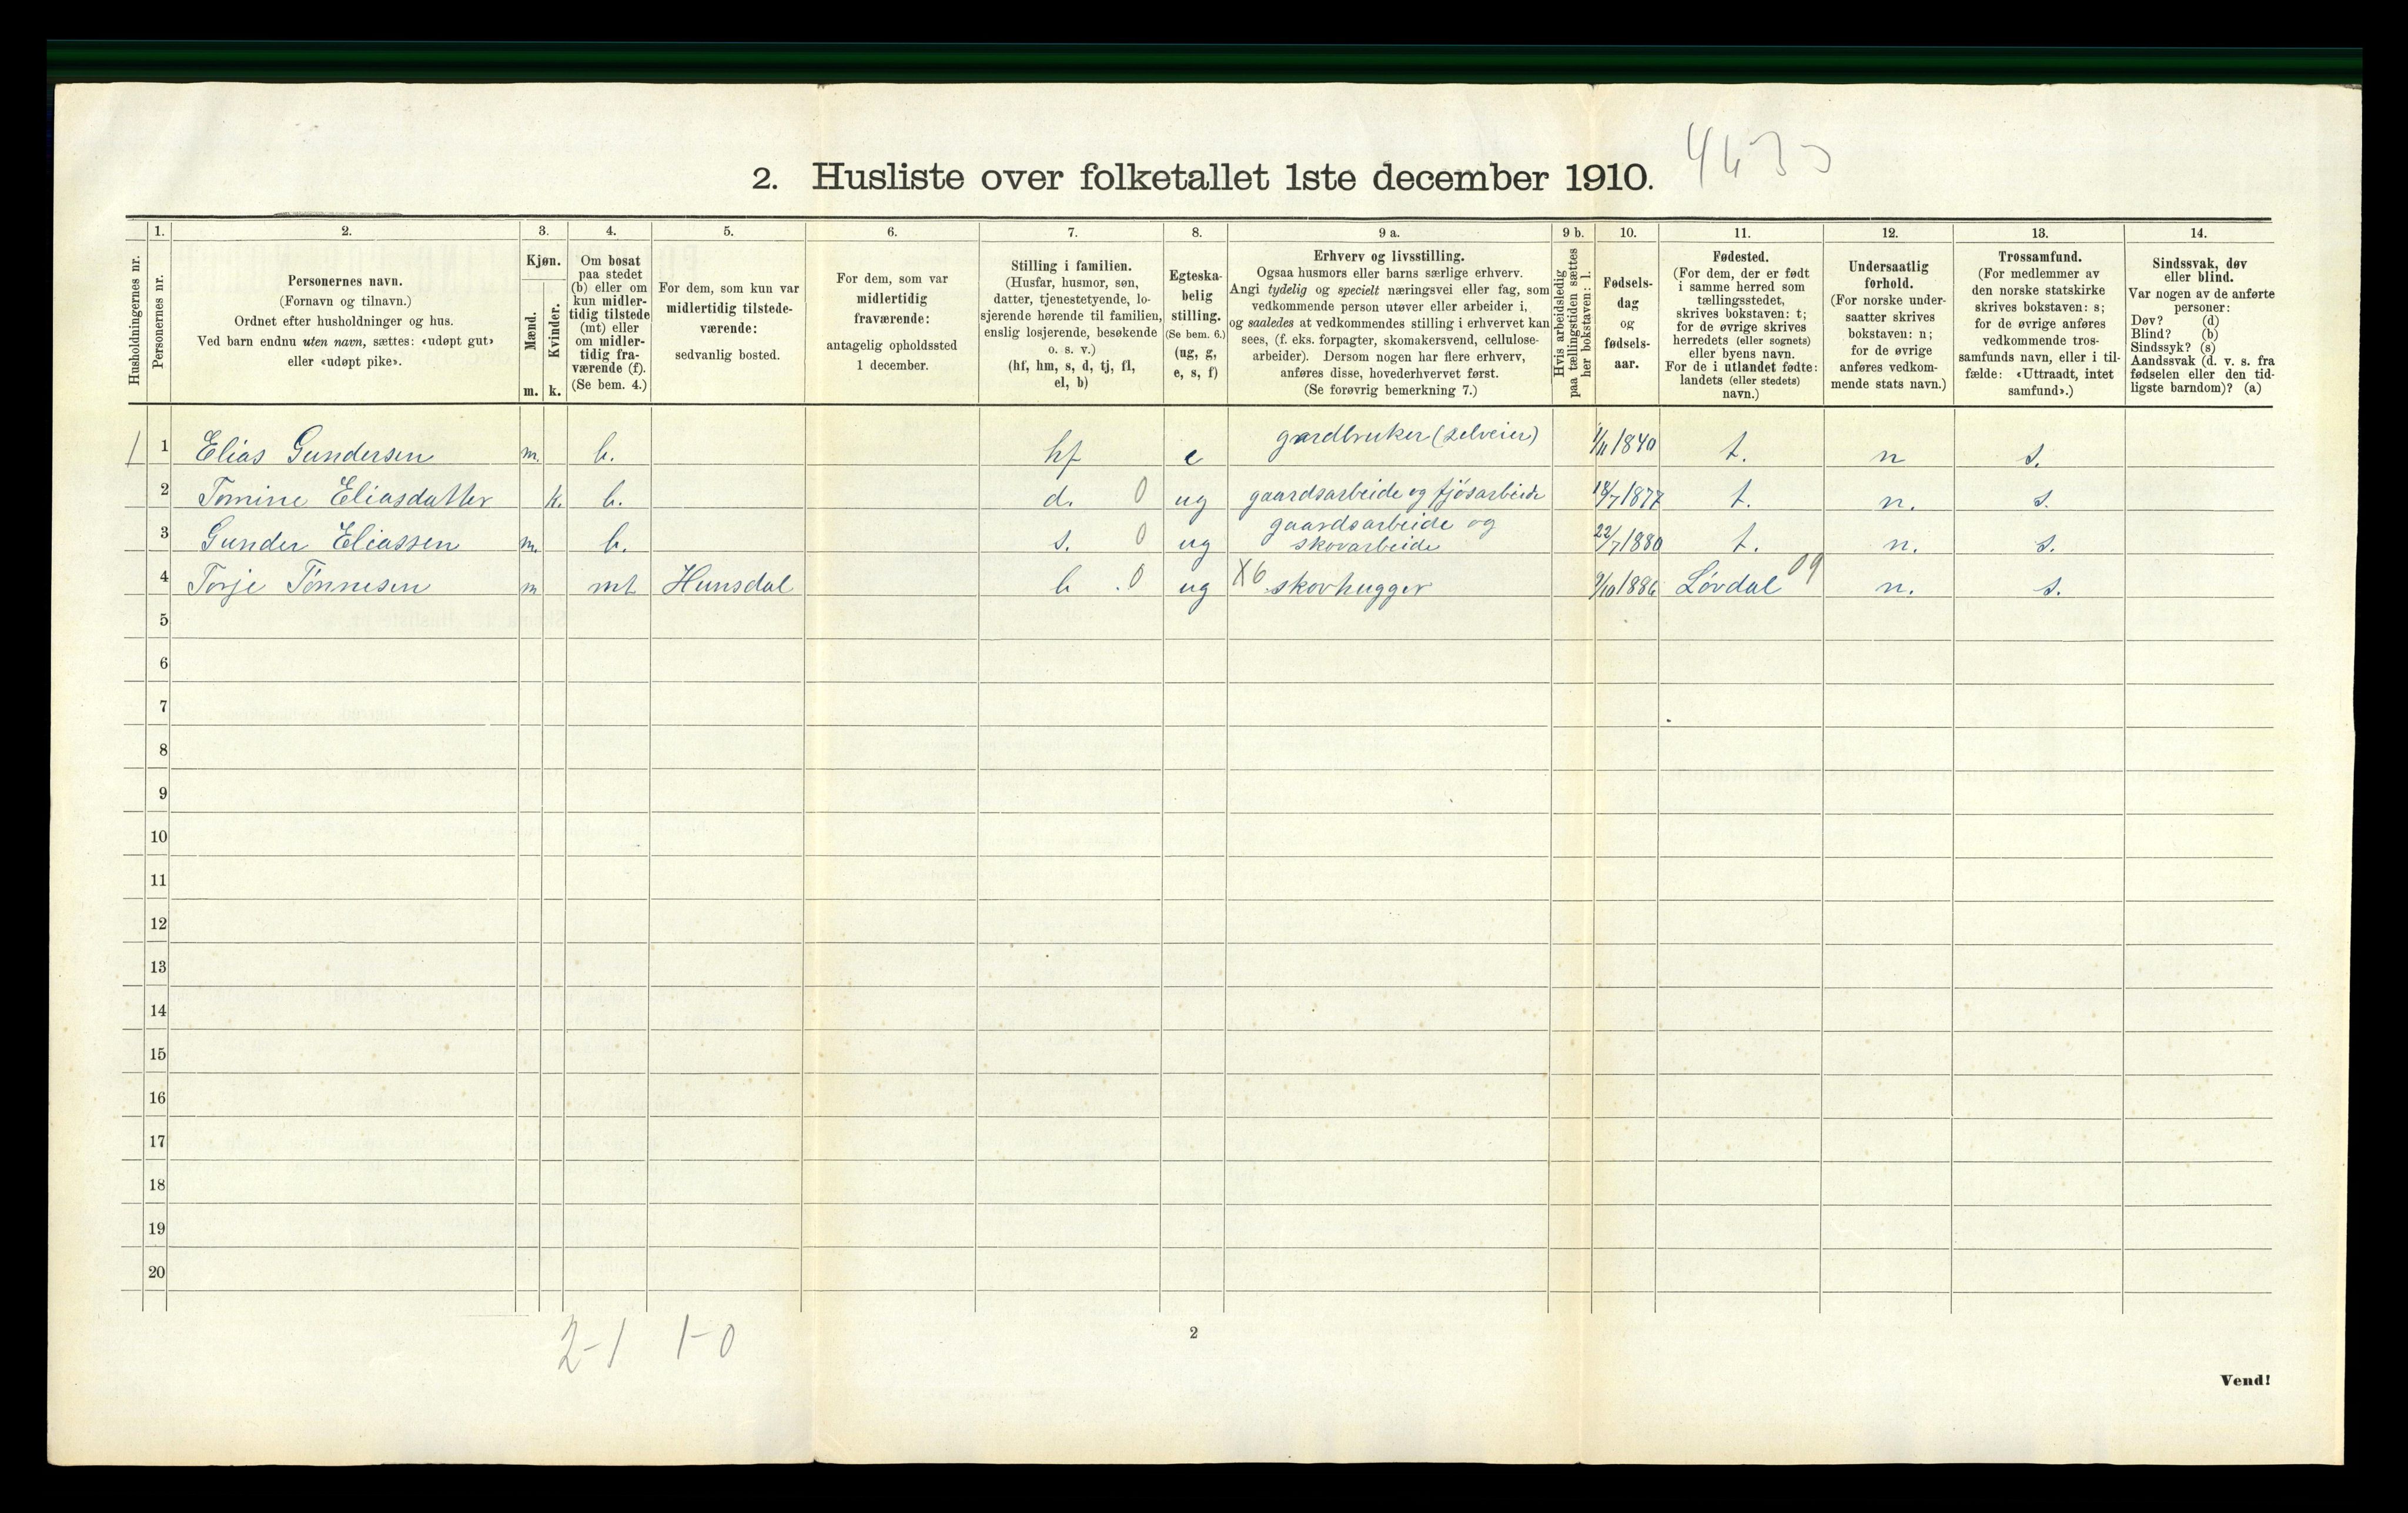 2. Husliste over folketallet 1ste december 1910.
1. 2. 3. 4. 5. 6. 7. 8. 9 a. 9 b. 10. 11. 12. 13. 14.
Husholdningernes nr.
Personernes nr.
Personernes navn.
(Fornavn og tilnavn.)
Ordnet efter husholdninger og hus.
Ved barn endnu uten navn, sættes: «udøpt gut»
eller «udøpt pike».
Kjøn.
Mænd.
m.
Kvinder.
k.
Om bosat
paa stedet
(b) eller om
kun midler-
tidig tilstede
(mt) eller
om midler-
tidig fra-
værende (f).
(Se bem. 4.)
For dem, som kun var
midlertidig tilstede-
værende:
sedvanlig bosted.
For dem, som var
midlertidig
fraværende:
antagelig opholdssted
1 december.
Stilling i familien.
(Husfar, husmor, søn,
datter, tjenestetyende, lo-
sjerende hørende til familien,
enslig losjerende, besøkende
o. s. v.)
(hf, hm, s, d, tj, fl,
el, b)
Egteska-
belig
stilling.
(Se bem. 6.)
(ug, g,
e, s, f)
Erhverv og livsstilling.
Ogsaa husmors eller barns særlige erhverv.
Angi tydelig og specielt næringsvei eller fag, som
vedkommende person utøver eller arbeider i,
og saaledes at vedkommendes stilling i erhvervet kan
sees, (f. eks. forpagter, skomakersvend, cellulose-
arbeider). Dersom nogen har flere erhverv,
anføres disse, hovederhvervet først.
(Se forøvrig bemerkning 7.)
Hvis arbeidsledig
paa tællingstiden sættes
her bokstaven: l.
Fødsels-
dag
og
fødsels-
aar.
Fødested.
(For dem, der er født
i samme herred som
tællingsstedet,
skrives bokstaven: t;
for de øvrige skrives
herredets (eller sognets)
eller byens navn.
For de i utlandet fødte:
landets (eller stedets)
navn.)
Undersaatlig
forhold.
(For norske under-
saatter skrives
bokstaven: n;
for de øvrige
anføres vedkom-
mende stats navn.)
Trossamfund.
(For medlemmer av
den norske statskirke
skrives bokstaven: s;
for de øvrige anføres
vedkommende tros-
samfunds navn, eller i til-
fælde: «Uttraadt, intet
samfund».)
Sindssvak, døv
eller blind.
Var nogen av de anførte
personer:
Døv? (d)
Blind? (b)
Sindssyk? (s)
Aandssvak (d. v. s. fra
fødselen eller den tid-
ligste barndom)? (a)
1 1 Elias Gundersen m. b. hf e gardbruker (selveier) 1/11 1840 t. n s.
2 Tomine Eliasdatter k. b. d. 0 ug gaardsarbeide og fjösarbeide 18/7 1877 t. n. s.
3 Gunder Eliassen m. b. s. 0 ug gaardsarbeide og
skovarbeide 22/7 1880 t. n. s.
4 Torje Tönnesen m mt Hunsdal b 0 ug X6 skovhugger 9/10 1886 Lövdal 09 n. s.
5
6
7
8
9
10
11
12
13
14
15
16
17
18
19
20
2-1 1-0
2
Vend!